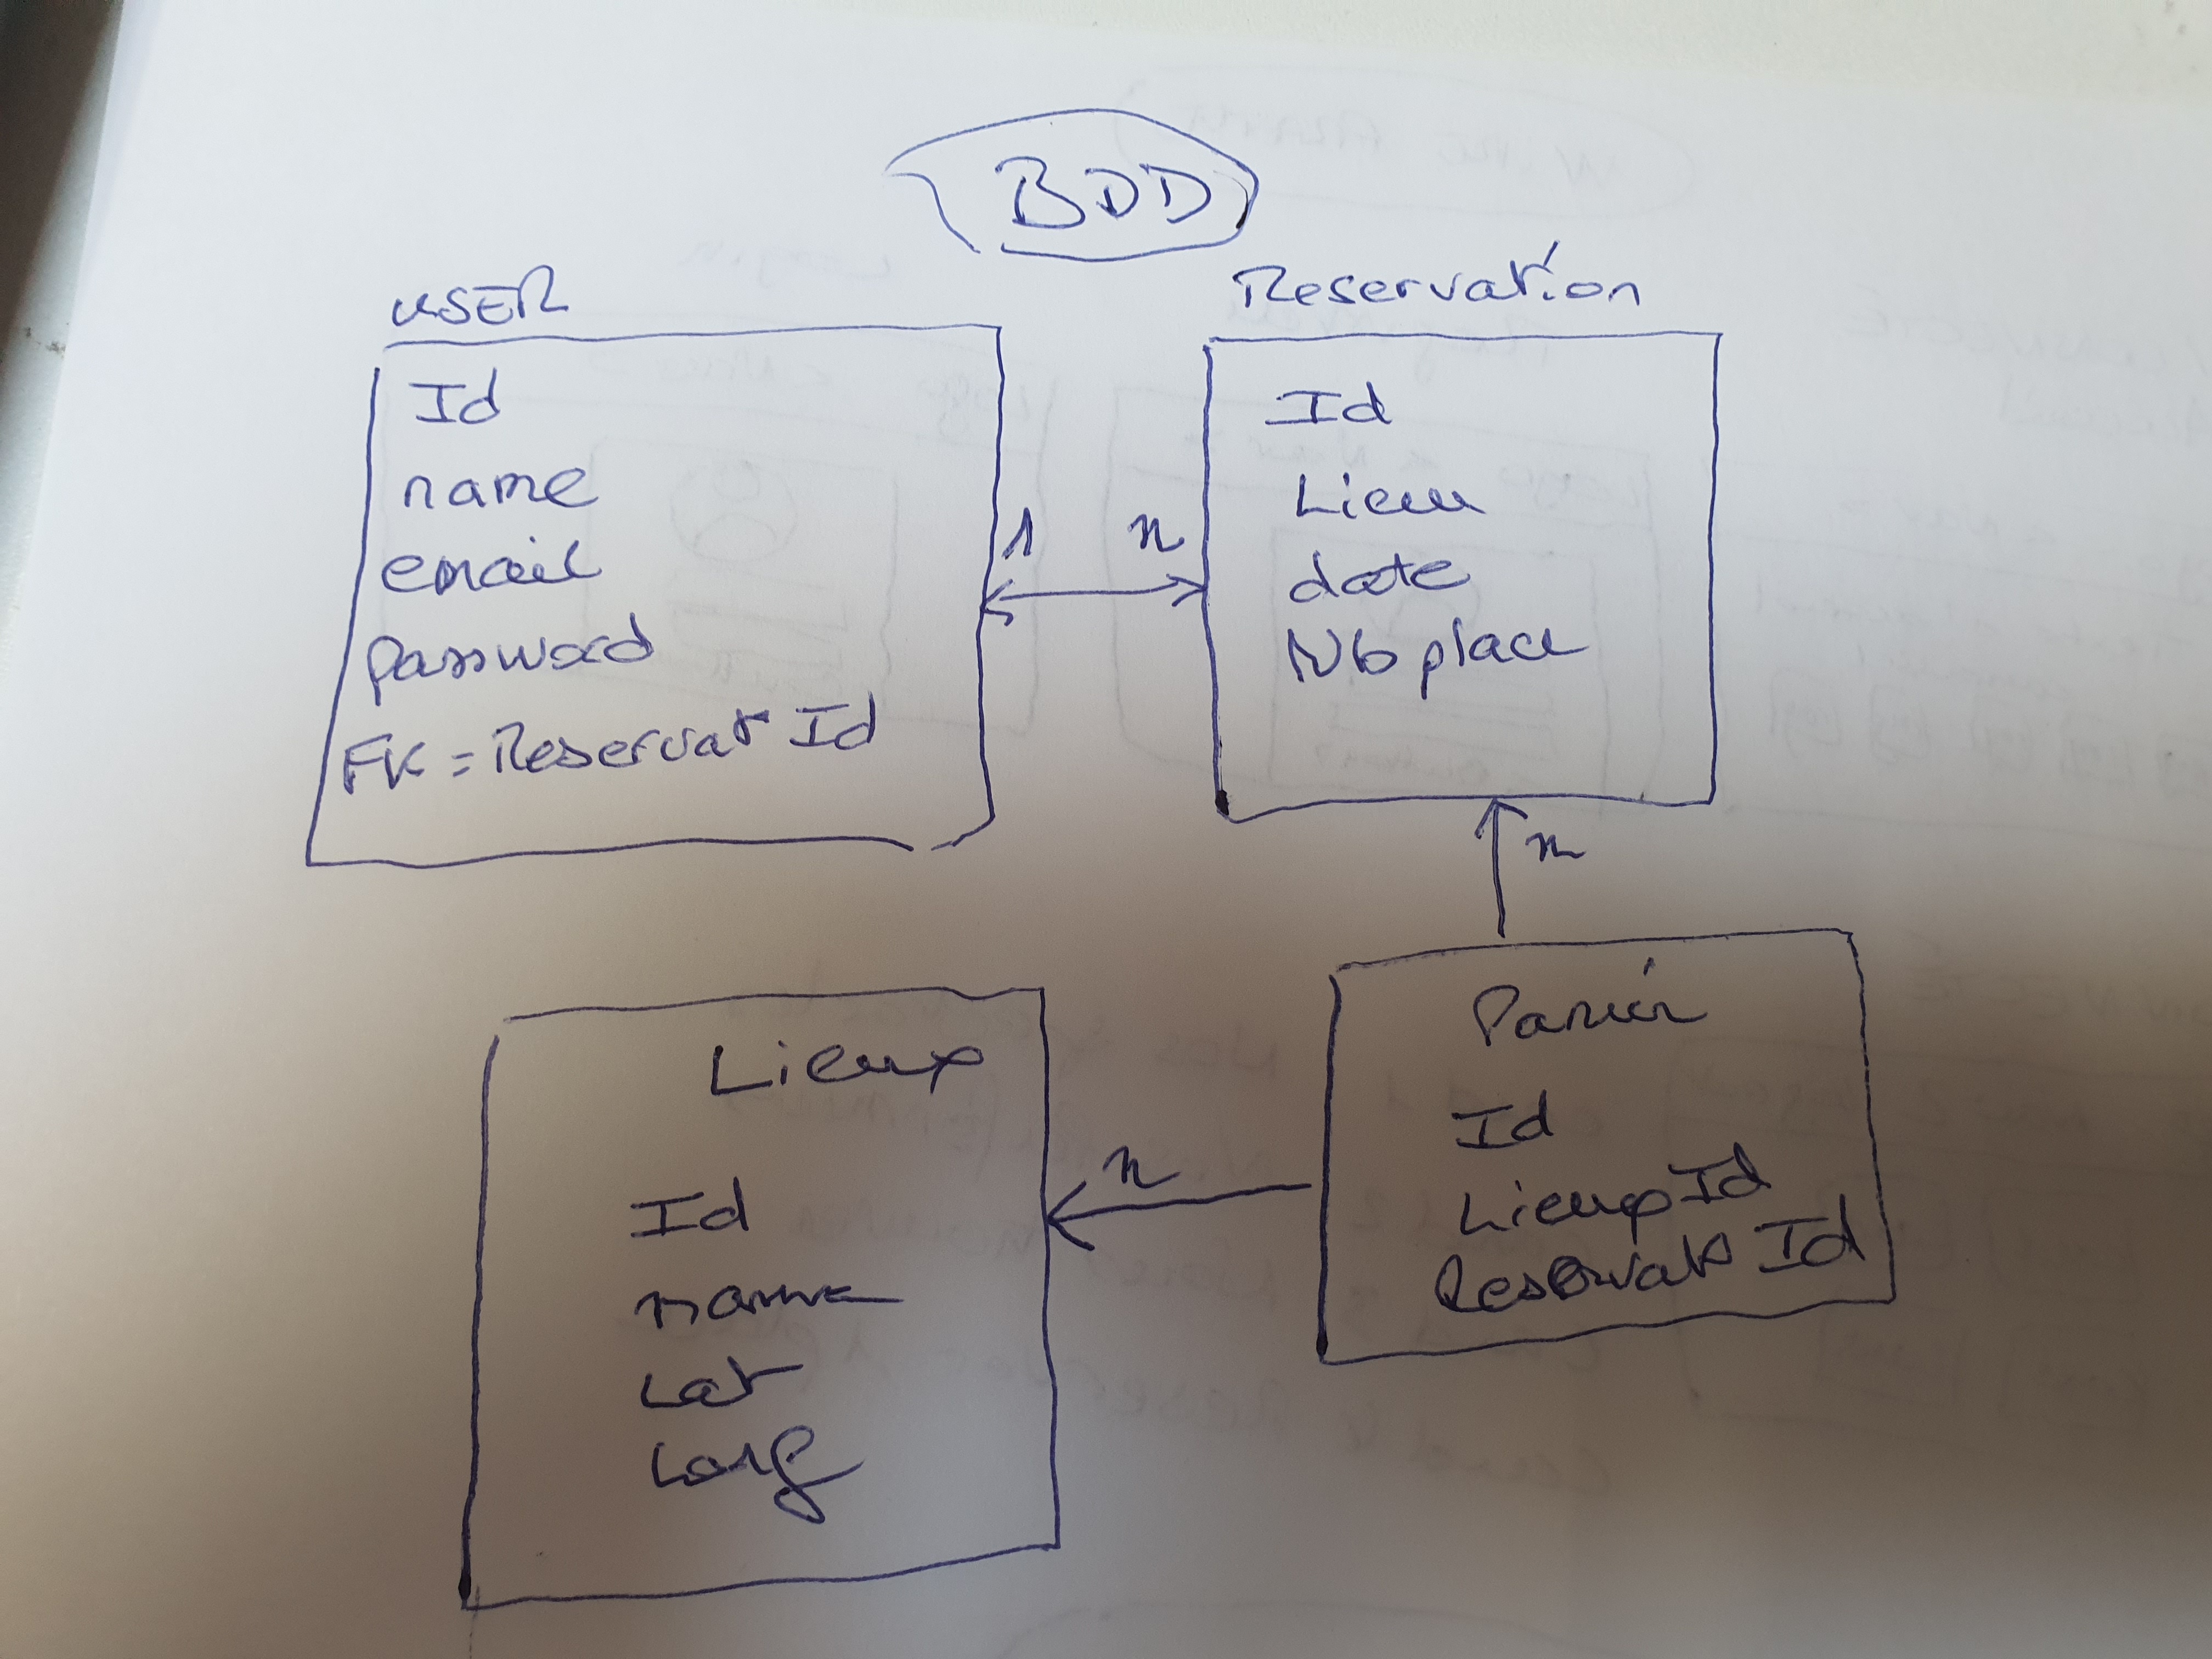 BDD
USER
Id
name
email
Password
FK = Reservat Id
1 n
Reservation
Id
Lieu
date
Nb place
n
Lieup
Id
name
Lat
Long
n
Panier
Id
LieupId
Id